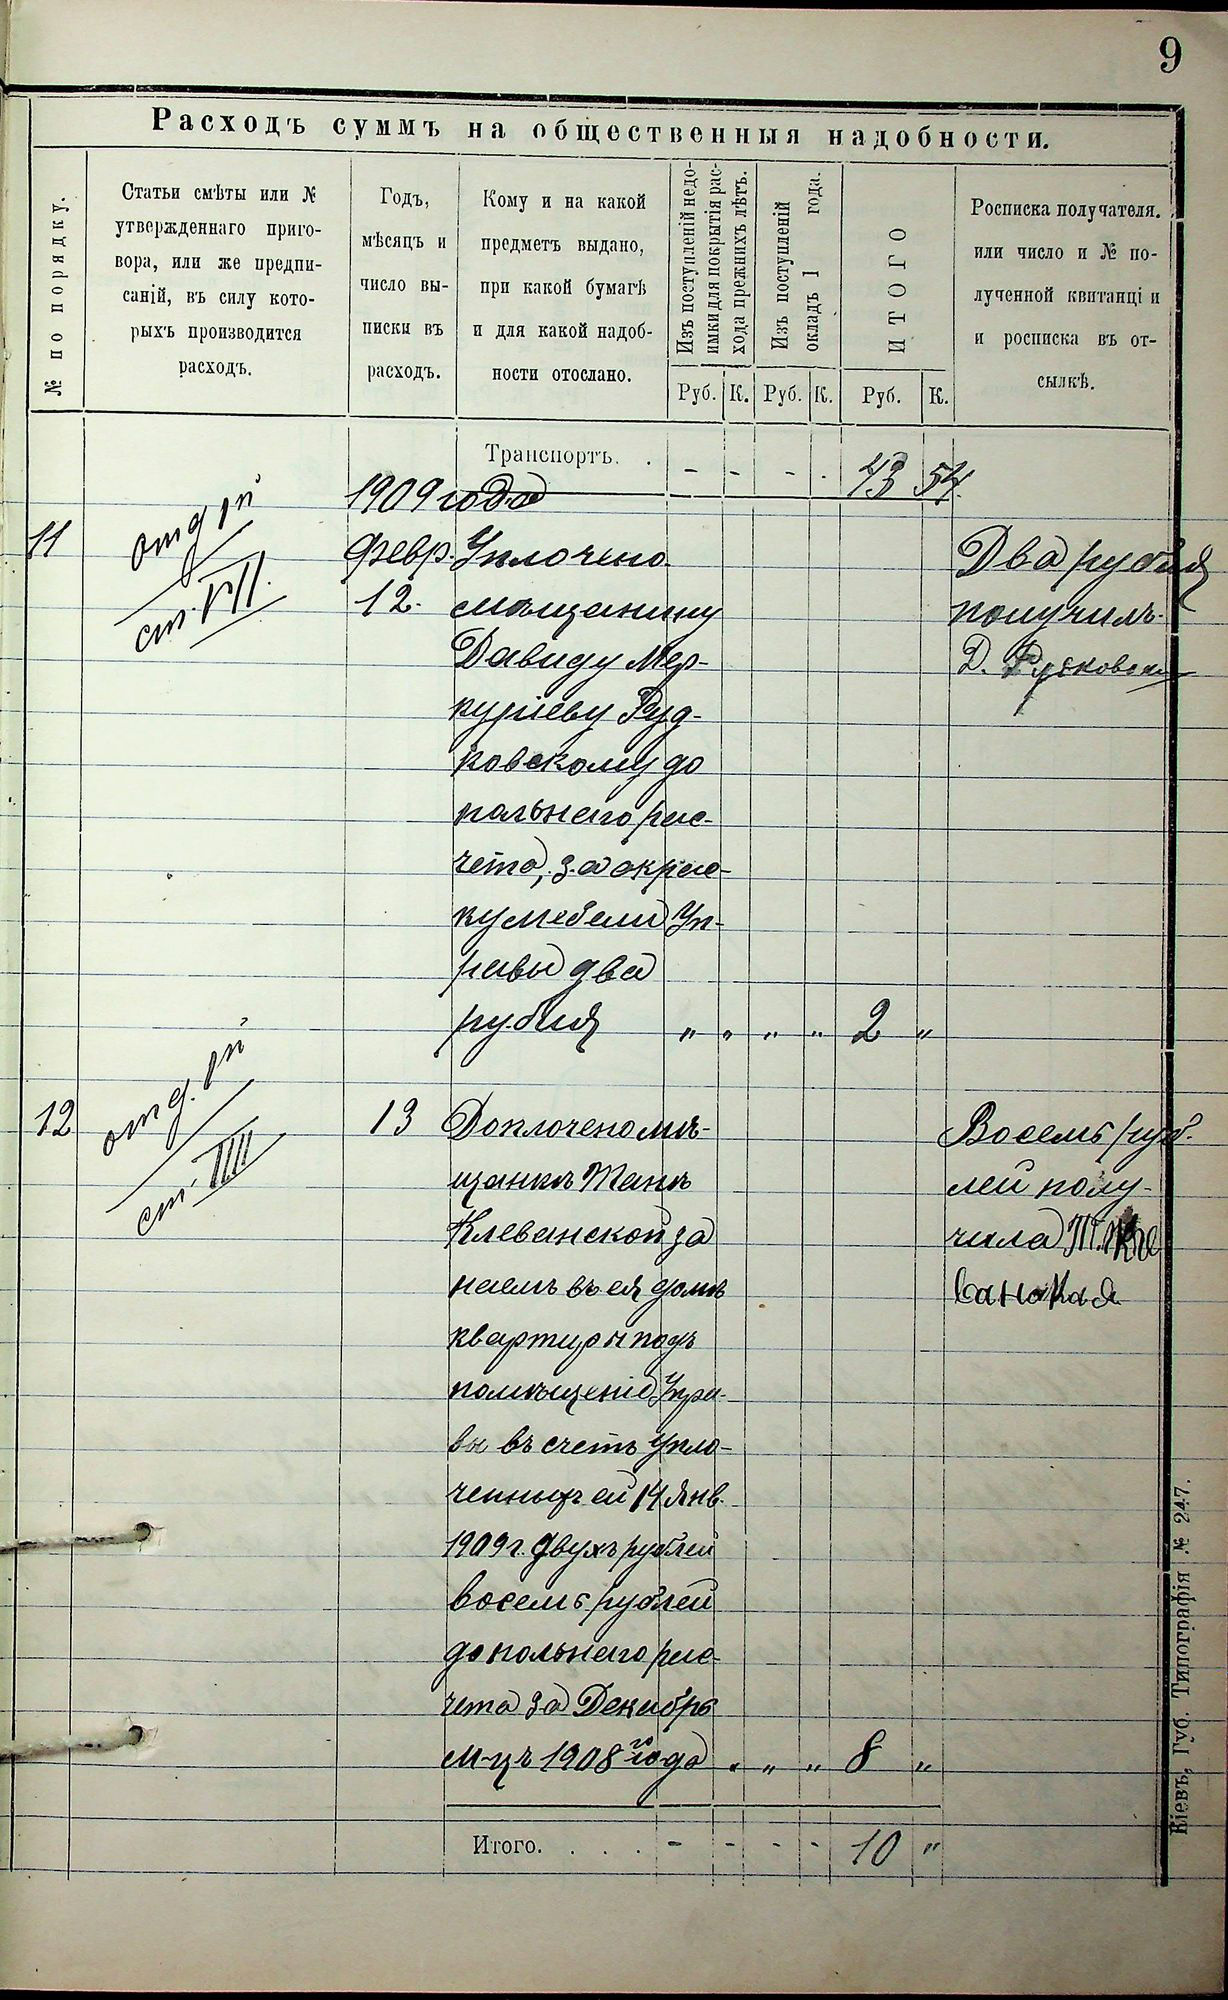 9
Расходъ суммъ на общественныя надобности.
№ по порядку.
Статьи смѣты или №
утвержденнаго приго-
вора, или же предпи-
саній, въ силу кото-
рыхъ производится
расходъ.
Годъ,
мѣсяцъ и
число вы-
писки въ
расходъ.
Кому и на какой
предметъ выдано,
при какой бумагѣ
и для какой надоб-
ности отослано.
Изъ поступленій недо-
имки для покрытія рас-
хода прежнихъ лѣтъ.
Изъ поступленій
окладъ 1 года.
ИТОГО
Росписка получателя.
или число и № по-
лученной квитанціи
и росписка въ от-
сылкѣ.
Руб. К. Руб. К. Руб. К.
Транспортъ. . - - - . 43 54.
1909 года
11
отд. Iй
ст. VII.
Февр.
12.
Уплочено
мѣщанину
Давиду Мер-
куріеву Руд-
ковскому до
польнаго рас-
чета, за окрас-
ку мебели Уп-
равы два
рубля " " " " 2 "
Два рубля
получилъ
Д. Рудковскій
12
отд. Iй
ст. IIII
13
Доплочено мѣ-
щанкѣ Танѣ
Клеванской за
наемъ въ ея домѣ
квартиры подъ
помѣщеніе Упра-
вы въ счетъ упло-
ченныхъ ей 14 Янв.
1909 г. двухъ рублей
восемь рублей
до польнаго рас-
чета за Декабрь
м-цъ 1908 го года . " " 8 "
Восемь руб-
лей полу-
чила Т. Кле
ванская
Итого. . . . - - - - 10 "
Кіевъ, Губ. Типографія № 247.